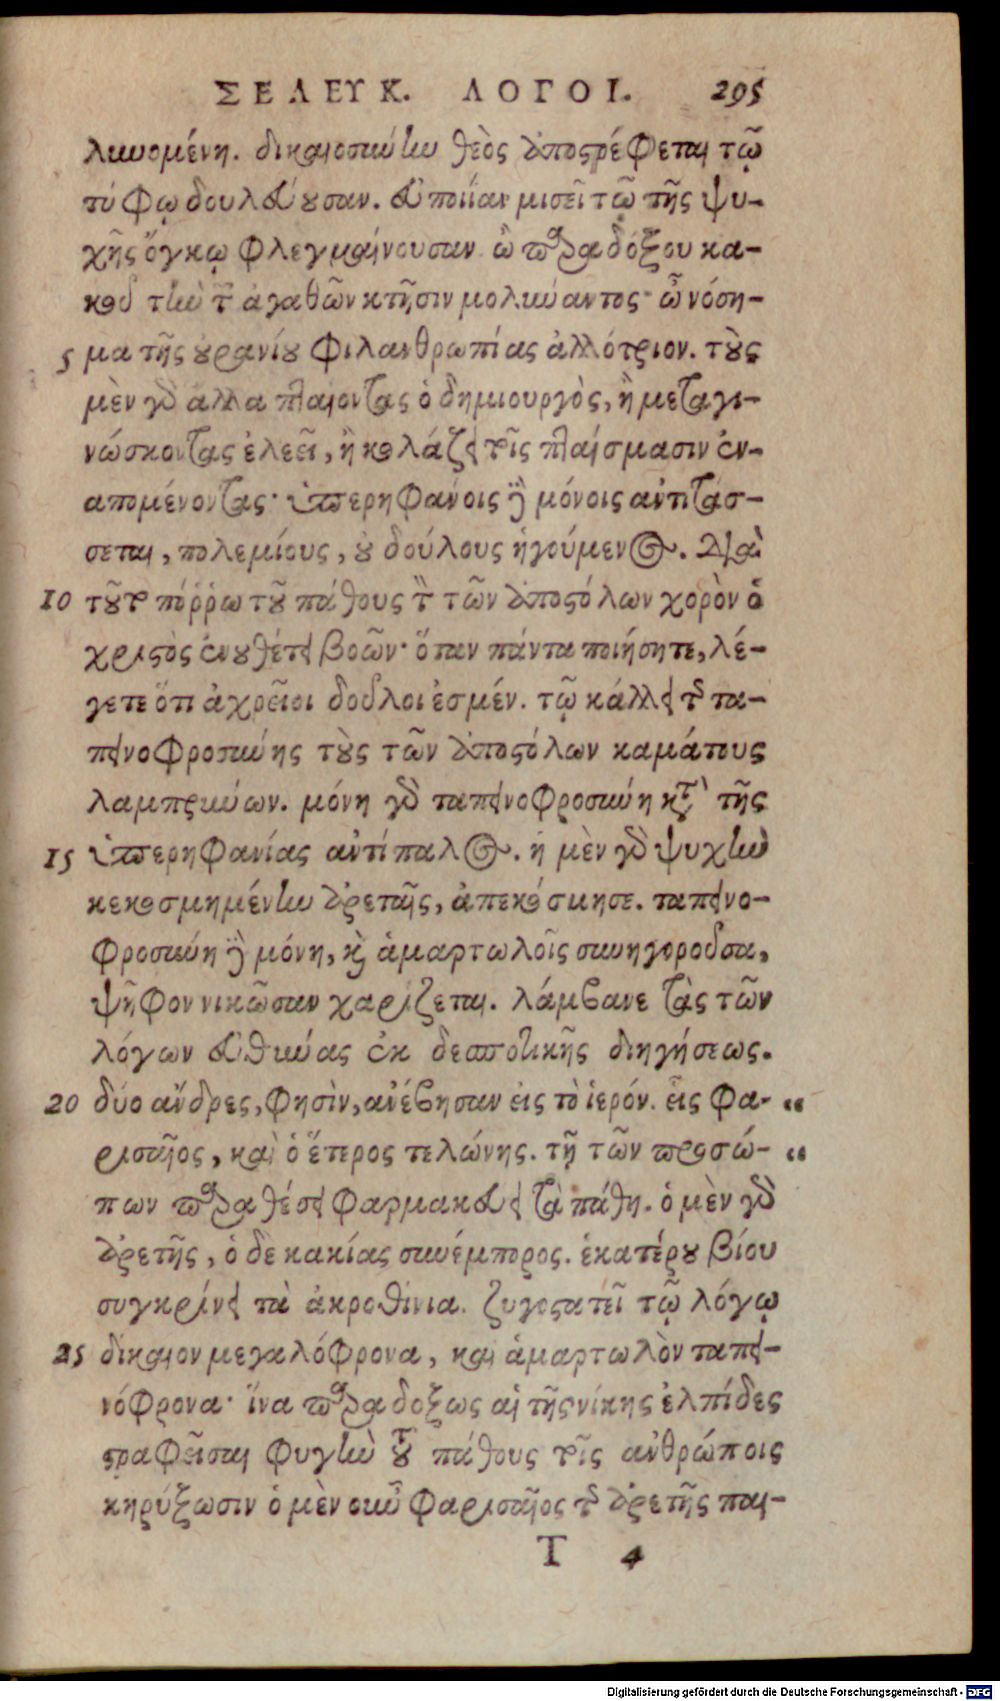 ΣΕΛΕΥΚ. ΛΟΓΟΙ. 295
λυνομένη. δικαιοσύνην θεὸς ἀποστρέφεται τῷ
τύφῳ δουλεύουσαν. εὐποιΐαν μισεῖ τῷ τῆς ψυ-
χῆς ὄγκῳ φλεγμαίνουσαν. ὢ παραδόξου κα-
κοῦ τὴν τῶν ἀγαθῶν κτῆσιν μολύναντος· ὢ νόση-
5 μα τῆς οὐρανίου φιλανθρωπίας ἀλλότριον. τοὺς
μὲν γὸ ἄλλα πταίοντας ὁ δημιουργὸς, ἢ μεταγι-
νώσκοντας ἐλεεῖ, ἢ κολάζει τοῖς πταίσμασιν ἐν-
απομένοντας· ὑπερηφάνοις δὲ μόνοις ἀντιτάσ-
σεται, πολεμίους, οὐ δούλους ἡγούμενος. διὰ
10 τοῦτο πόῤῥω τοῦ πάθους τὸν τῶν ἀποστόλων χορὸν ὁ
χριστὸς ἐνουθέτει βοῶν· ὅταν πάντα ποιήσητε, λέ-
γετε ὅτι ἀχρεῖοι δοῦλοι ἐσμέν. τῷ κάλλει τῆς τα-
πεινοφροσύνης τοὺς τῶν ἀποστόλων καμάτους
λαμπρύνων. μόνη γὸ ταπεινοφροσύνη κατὰ τῆς
15 ὑπερηφανίας ἀντίπαλος. ἡ μὲν γὸ ψυχὴν
κεκοσμημένην ἀρεταῖς, ἀπεκόσμησε. ταπεινο-
φροσύνη δὲ μόνη, καὶ ἁμαρτωλοῖς συνηγοροῦσα,
ψῆφον νικῶσαν χαρίζεται. λάμβανε τὰς τῶν
λόγων εὐθύνας ἐκ δεσποτικῆς διηγήσεως.
20 δύο ἄνδρες, φησὶν, ἀνέβησαν εἰς τὸ ἱερόν. εἷς φα- “
ρισαῖος, καὶ ὁ ἕτερος τελώνης. τῇ τῶν προσώ- “
πων παραθέσει φαρμακεύει τὰ πάθη. ὁ μὲν γὸ
ἀρετῆς, ὁ δὲ κακίας συνέμπορος. ἑκατέρου βίου
συγκρίνει τὰ ἀκροθίνια. ζυγοστατεῖ τῷ λόγῳ
25 δίκαιον μεγαλόφρονα, καὶ ἁμαρτωλὸν ταπει-
νόφρονα· ἵνα παραδόξως αἱ τῆς νίκης ἐλπίδες
στραφεῖσαι φυγὴν τοῦ πάθους τοῖς ἀνθρώποις
κηρύξωσιν ὁ μὲν οὖν φαρισαῖος τῆς ἀρετῆς παι-
T 4
Digitalisierung gefördert durch die Deutsche Forschungsgemeinschaft - DFG